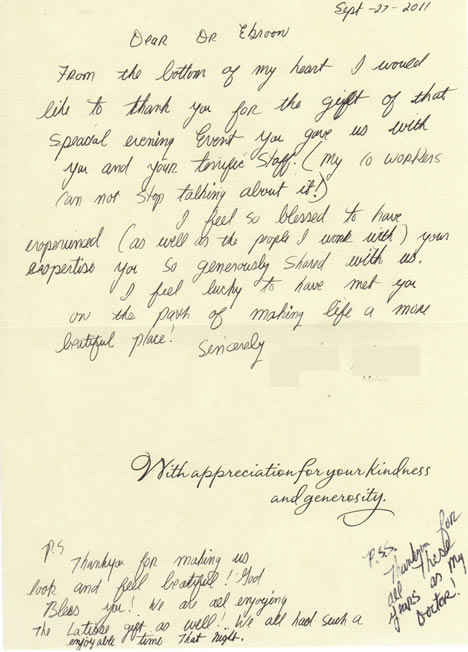 Sept-27-2011
Dear Dr Ebroon
From the bottom of my heart I would
like to thank you for the gift of that
speacial evening Event you gave us with
you and your terrific staff. (my co workers
can not stop talking about it!)
I feel so blessed to have
experienced (as well as the people I work with) your
expertise you so generously shared with us.
I feel lucky to have met you
on the path of making life a more
beautiful place!
Sincerely
With appreciation for your kindness
and generosity.
P.S
Thankyou for making us
look and feel beautiful! God
Bless you! We are all enjoying
The Latisse gift as well! We all had such a
enjoyable time that night.
P.S.S.
Thankyou for
all these
years as my
Doctor!